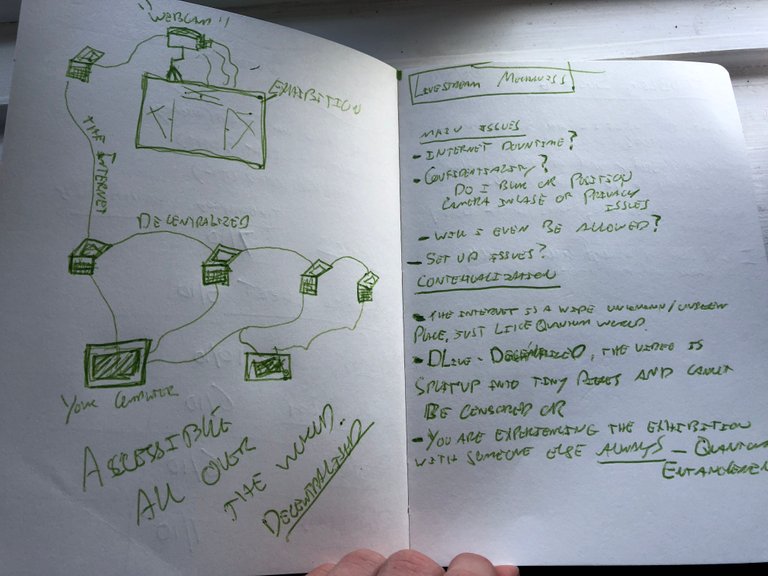 "WEBCAM"
EXHIBITION
THE INTERNET
DECENTRALIZED
YOUR COMPUTER
ACCESSIBLE
ALL OVER
THE WORLD.
DECENTRALIZED
LIVESTREAM MECHANICS
MAIN ISSUES
- INTERNET DOWNTIME?
- CONFIDENTIALITY?
DO I BLUR OR POSITION
CAMERA INCASE OF PRIVACY
ISSUES
- WILL I EVEN BE ALLOWED?
- SET UP ISSUES?
CONTEXTUALIZATION
- THE INTERNET IS A WIDE UNKNOWN/UNSEEN
PLACE, JUST LIKE QUANTUM WORLD.
- DLIVE - DECENTRALIZED, THE VIDEO IS
SPLIT UP INTO TINY PIECES AND CANNOT
BE CENSORED OR
- YOU ARE EXPERIENCING THE EXHIBITION
WITH SOMEONE ELSE ALWAYS - QUANTUM
ENTANGLEMENT